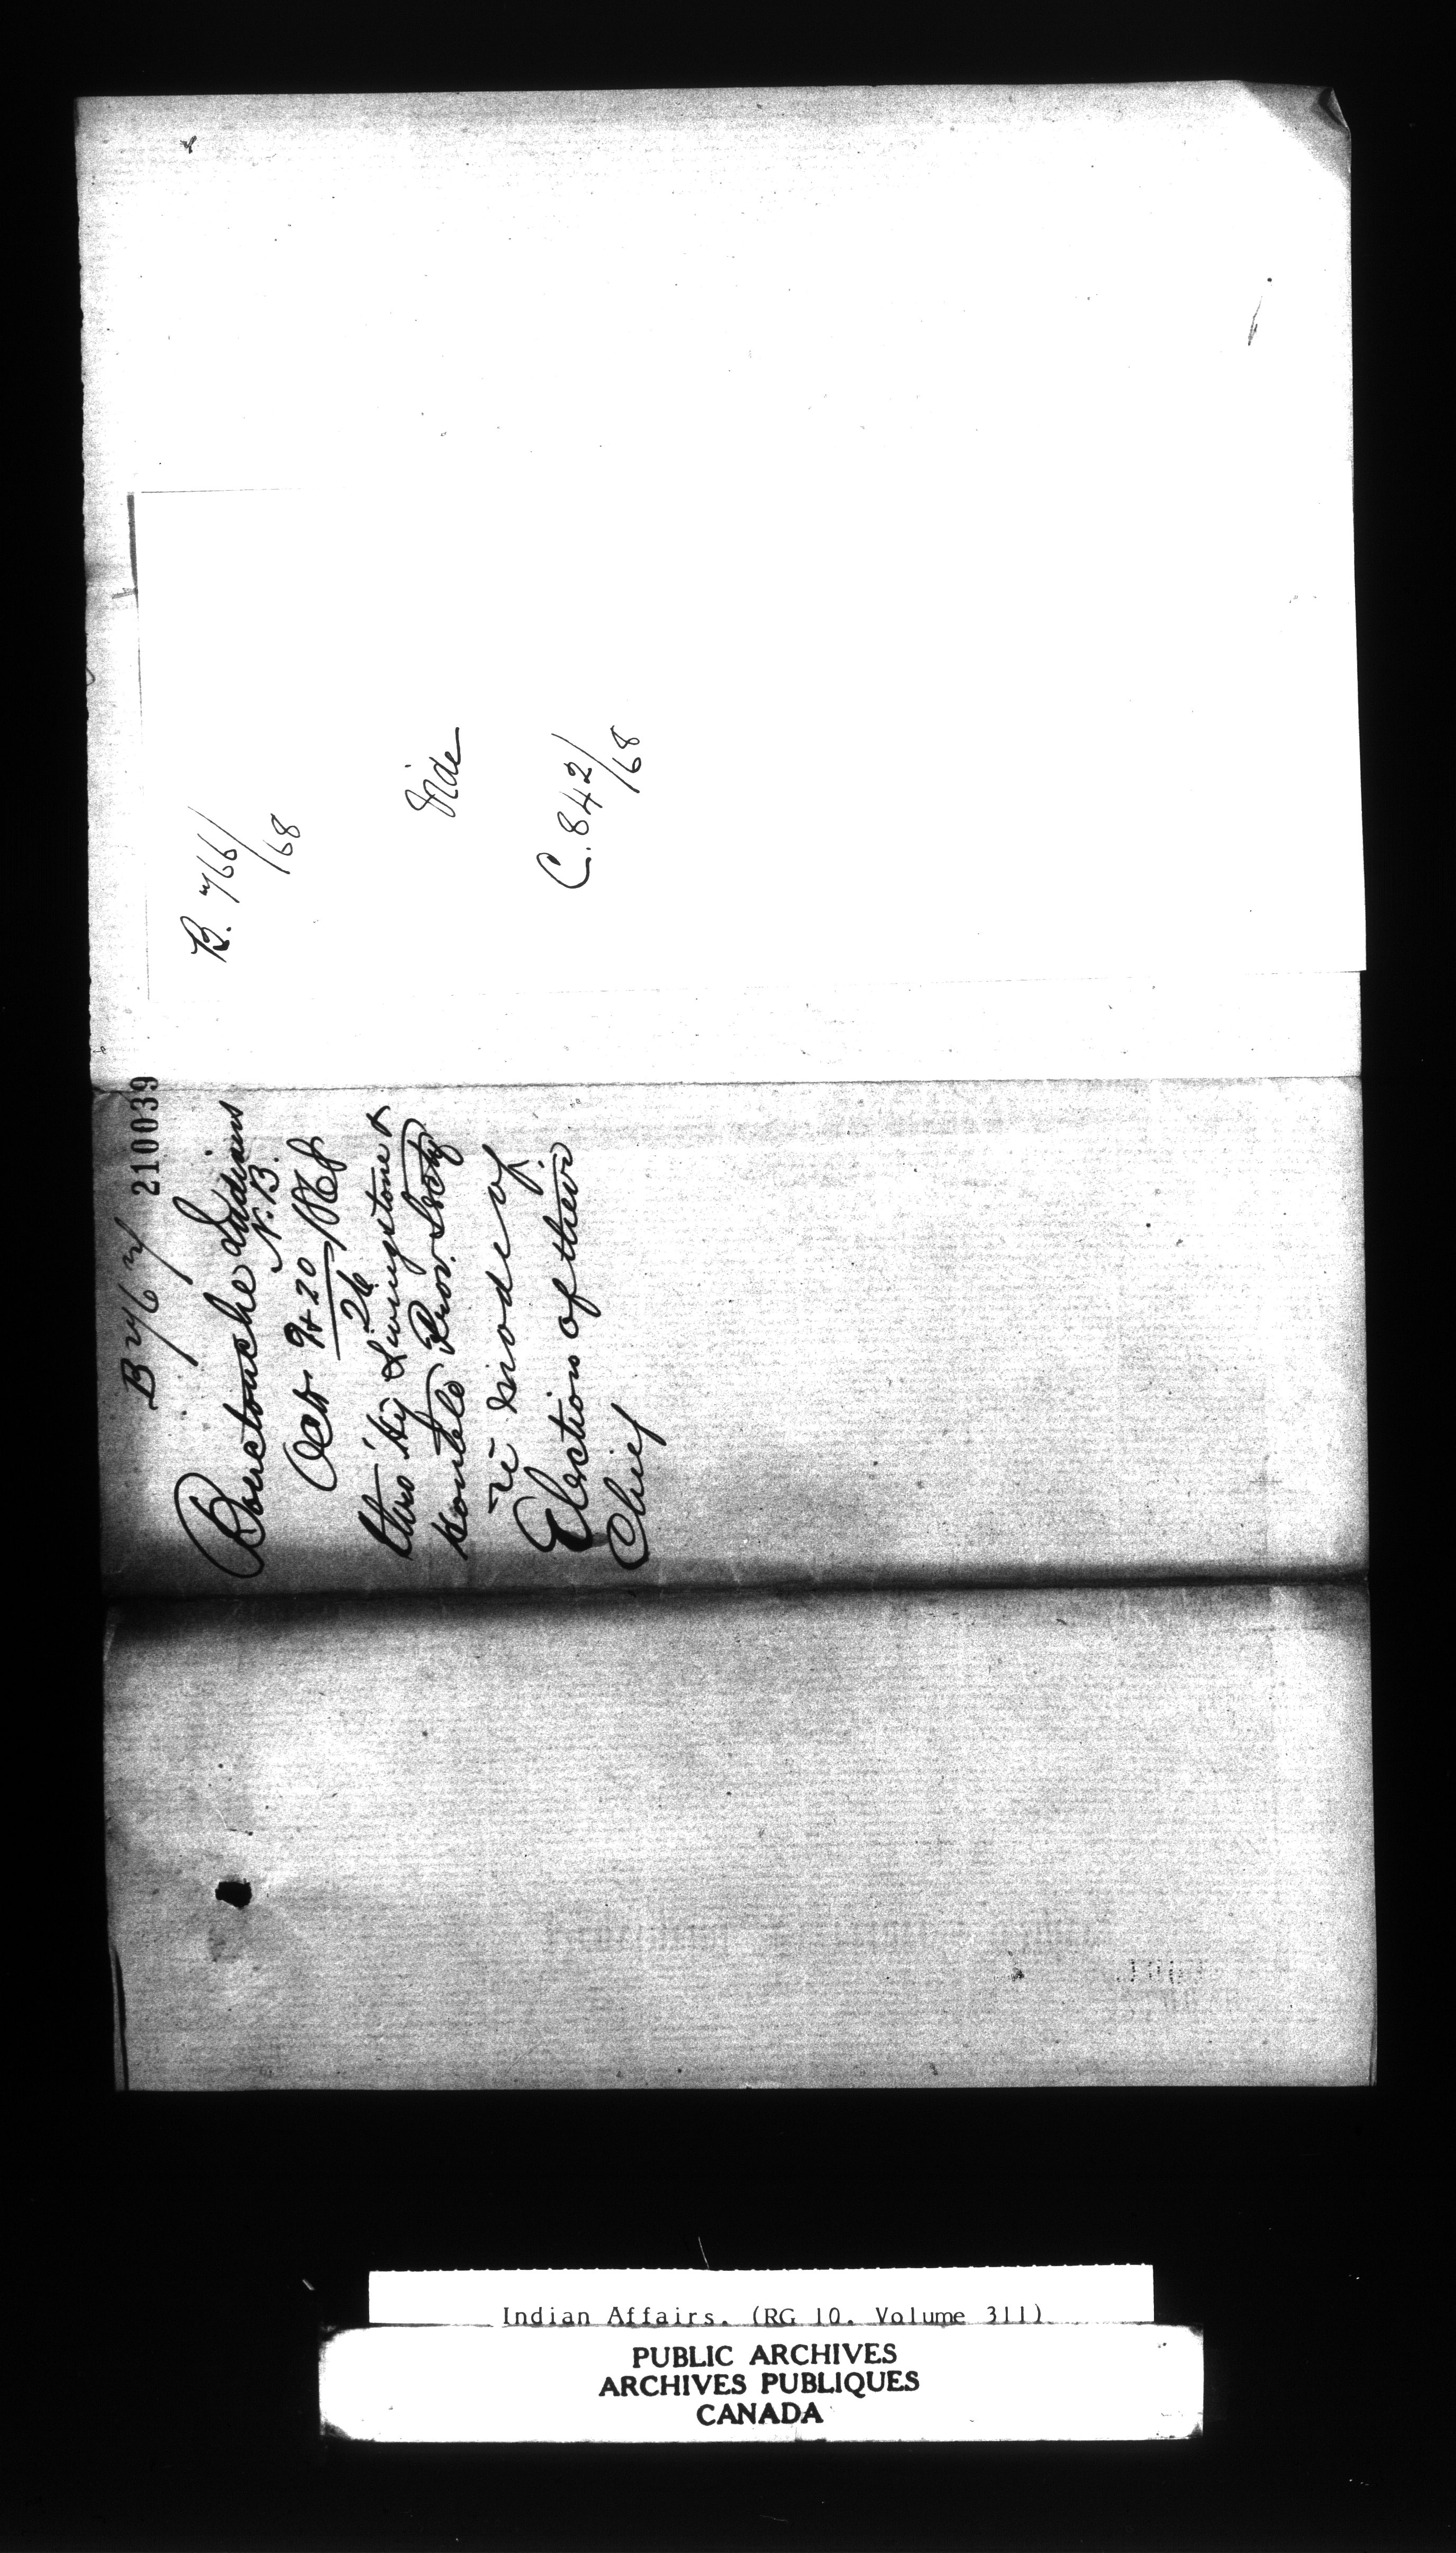 B. 766/68
Vide
C. 842/68
210039
B767
Bouctouche Indians
N.B.
Oct. 9 & 20/26 1868
thro' by Livingstone &
Prov. Secty
re mode of
Election of their
Chief
Indian Affairs. (RG 10. Volume 311)
PUBLIC ARCHIVES
ARCHIVES PUBLIQUES
CANADA